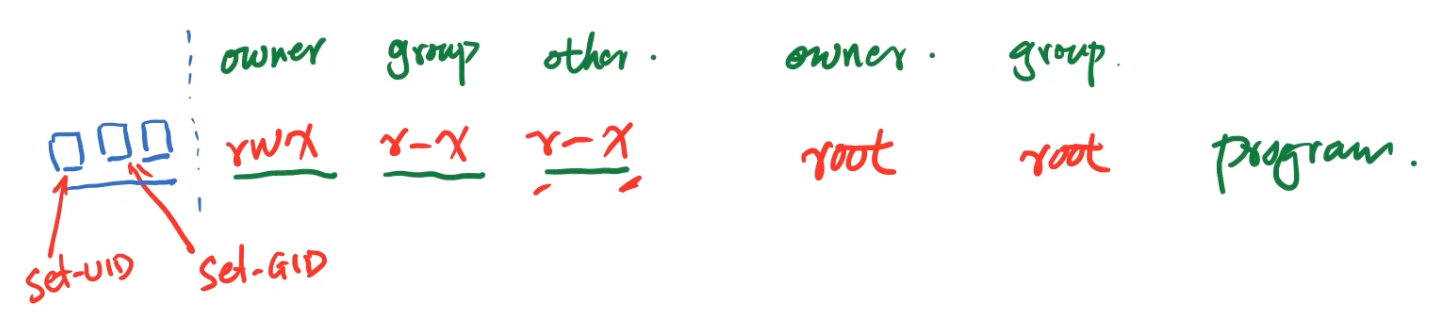 owner group other. owner. group.
rwx r-x r-x root root program.
Set-UID Set-GID